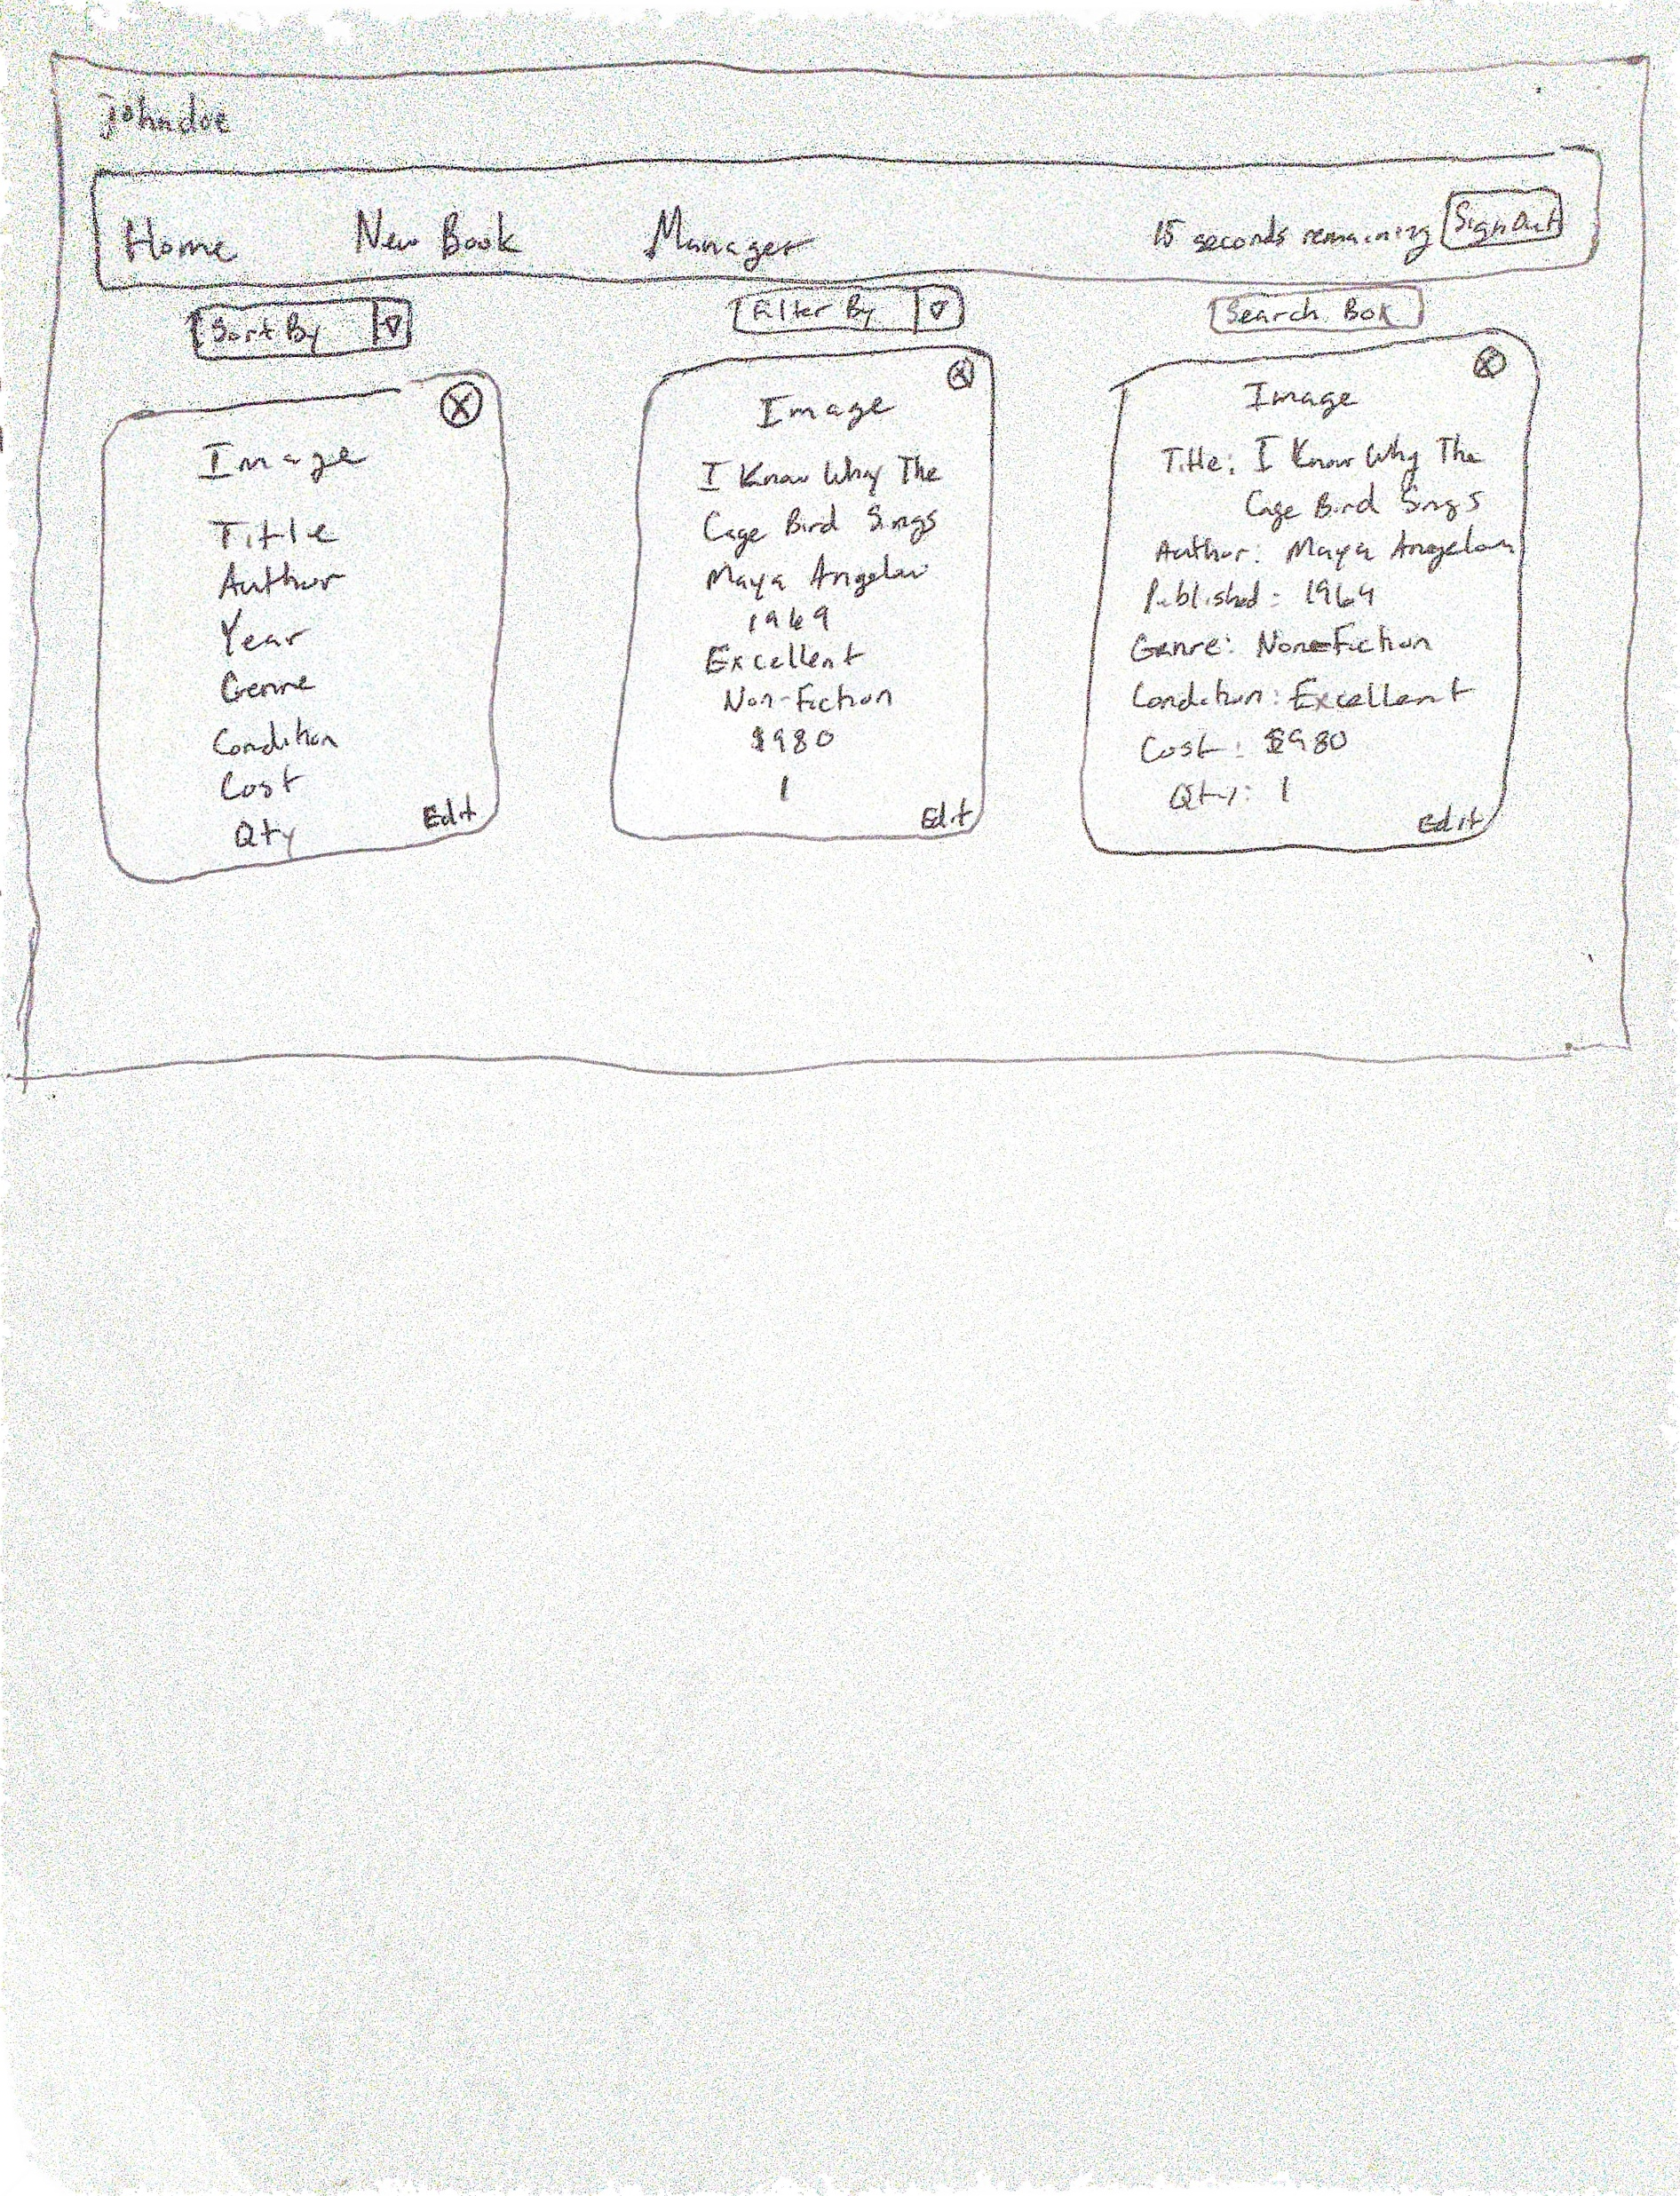 johndoe
Home New Book Manager 15 seconds remaining Sign Out
Sort By Filter By Search Box
Image
Title
Author
Year
Genre
Condition
Cost
Qty
Edit
Image
I Know Why The
Cage Bird Sings
Maya Angelou
1969
Excellent
Non-Fiction
$980
1
Edit
Image
Title: I Know Why The
Cage Bird Sings
Author: Maya Angelou
Published: 1969
Genre: Non-Fiction
Condition: Excellent
Cost: $980
Qty: 1
Edit